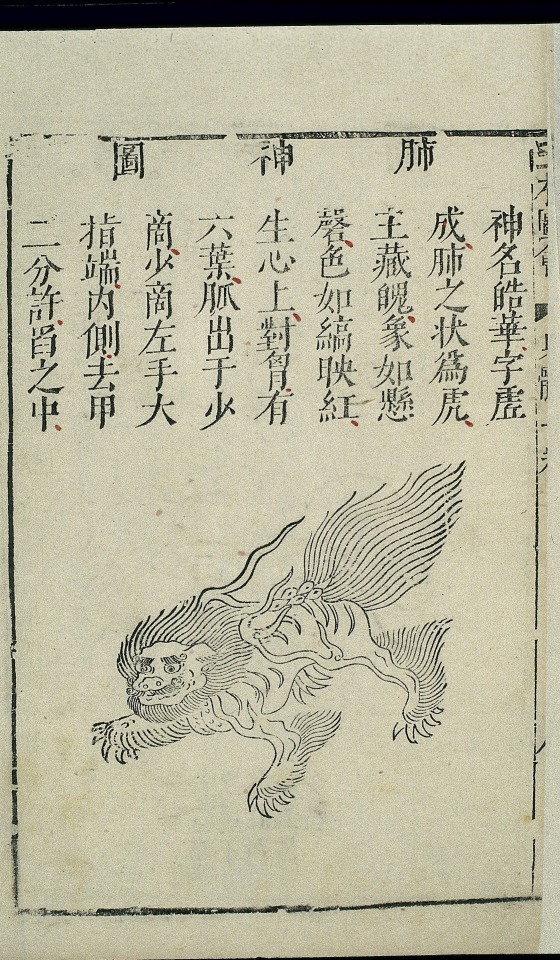 肺神圖
神名皓華字虛
成肺之状爲虎
主藏魄象如懸
磬色如縞映紅
生心上對胷有
六葉脈出于少
商少商左手大
指端内側去甲
二分許舀之中